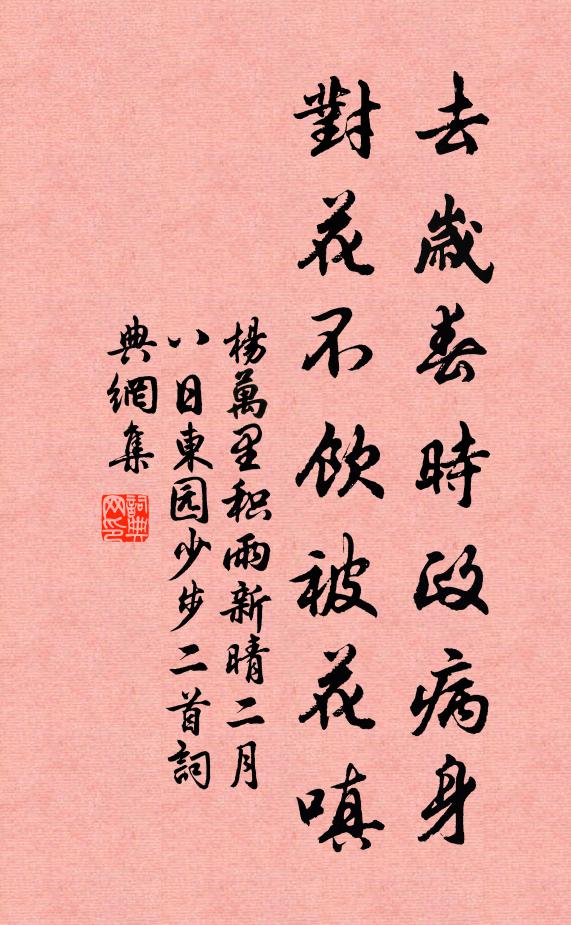 去歲春時政病身
對花不飲被花嗔
楊萬里积雨新晴二月
八日東园少步二首詞
典網集
詞典网印